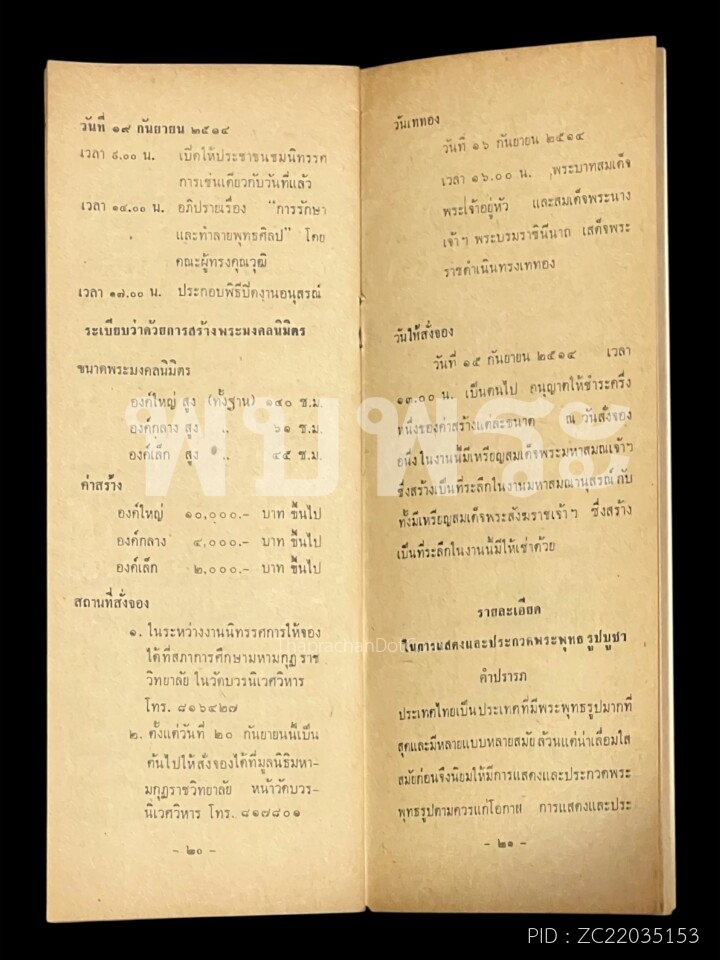 วันที่ ๑๙ กันยายน ๒๕๑๔
เวลา ๙.๐๐ น. เปิดให้ประชาชนชมนิทรรศ
การเช่นเดียวกับวันที่แล้ว
เวลา ๑๔.๐๐ น. อภิปรายเรื่อง "การรักษา
และทำลายพุทธศิลป" โดย
คณะผู้ทรงคุณวุฒิ
เวลา ๑๗.๐๐ น. ประกอบพิธีปิดงานอนุสรณ์
ระเบียบว่าด้วยการสร้างพระมงคลนิมิตร
ขนาดพระมงคลนิมิตร
องค์ใหญ่ สูง (ทั้งฐาน) ๑๔๐ ซ.ม.
องค์กลาง สูง ,, ๖๑ ซ.ม.
องค์เล็ก สูง ,, ๔๕ ซ.ม.
ค่าสร้าง
องค์ใหญ่ ๑๐,๐๐๐.- บาท ขึ้นไป
องค์กลาง ๔,๐๐๐.- บาท ขึ้นไป
องค์เล็ก ๒,๐๐๐.- บาท ขึ้นไป
สถานที่สั่งจอง
๑. ในระหว่างงานนิทรรศการให้จอง
ได้ที่สภาการศึกษามหามกุฏราช
วิทยาลัย ในวัดบวรนิเวศวิหาร
โทร. ๘๑๖๔๒๗
๒. ตั้งแต่วันที่ ๒๐ กันยายนนี้เป็น
ต้นไปให้สั่งจองได้ที่มูลนิธิมหา-
มกุฏราชวิทยาลัย หน้าวัดบวร-
นิเวศวิหาร โทร. ๘๑๗๘๐๑
- ๒๐ -
วันเททอง
วันที่ ๑๖ กันยายน ๒๕๑๔
เวลา ๑๖.๐๐ น. พระบาทสมเด็จ
พระเจ้าอยู่หัว และสมเด็จพระนาง
เจ้าฯ พระบรมราชินีนาถ เสด็จพระ
ราชดำเนินทรงเททอง
วันให้สั่งจอง
วันที่ ๑๕ กันยายน ๒๕๑๔ เวลา
๑๓.๐๐ น. เป็นต้นไป อนุญาตให้ชำระครึ่ง
หนึ่งของค่าสร้างแต่ละขนาด ณ วันสั่งจอง
อนึ่ง ในงานนี้มีเหรียญสมเด็จพระมหาสมณเจ้าฯ
ซึ่งสร้างเป็นที่ระลึกในงานมหาสมณานุสรณ์ กับ
ทั้งมีเหรียญสมเด็จพระสังฆราชเจ้าฯ ซึ่งสร้าง
เป็นที่ระลึกในงานนี้มีให้เช่าด้วย
รายละเอียด
ในการแสดงและประกวดพระพุทธรูปบูชา
คำปรารภ
ประเทศไทยเป็นประเทศที่มีพระพุทธรูปมากที่
สุดและมีหลายแบบหลายสมัย ล้วนแต่น่าเลื่อมใส
สมัยก่อนจึงนิยมให้มีการแสดงและประกวดพระ
พุทธรูปตามควรแก่โอกาส การแสดงและประ
- ๒๑ -
พบพระ
ThaprachanDotC
PID : ZC22035153